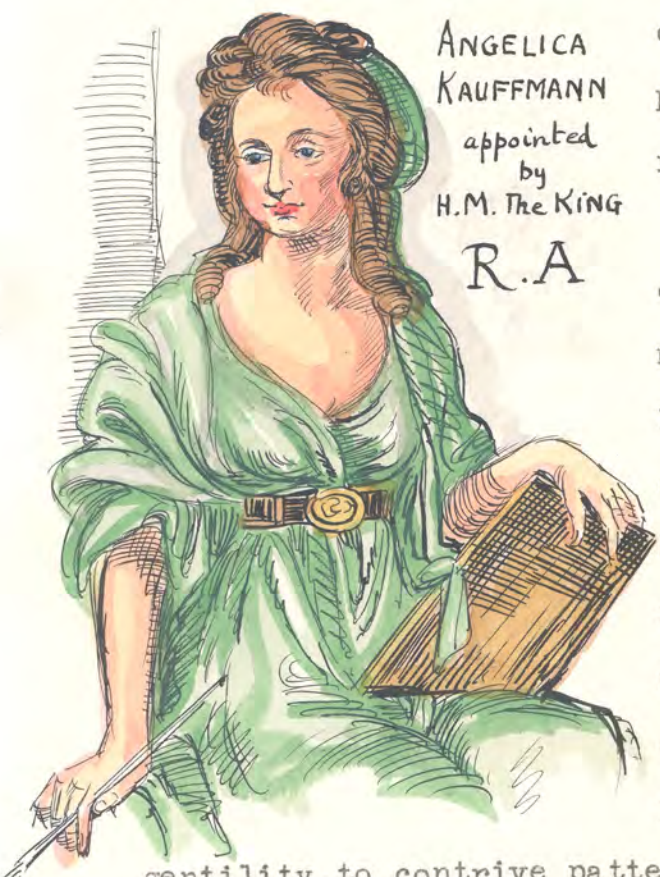 ANGELICA
KAUFFMANN
appointed
by
H.M. The KING
R.A
gentility to contrive patte